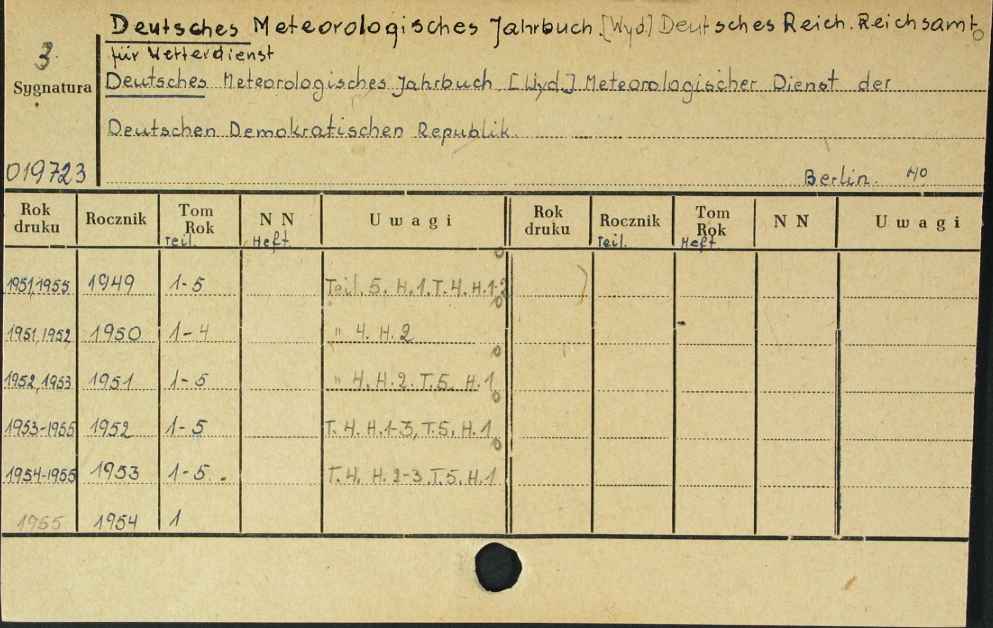 Deutsches Meteorologisches Jahrbuch. [Wyd.] Deutsches Reich. Reichsamt
für Wetterdienst
3
Sygnatura
Deutsches Meteorologisches Jahrbuch [Wyd.] Meteorologischer Dienst der
Deutschen Demokratischen Republik.
019723
Berlin. 4o
Rok druku Rocznik Tom Rok N N Uwagi Rok druku Rocznik Tom Rok N N Uwagi
Teil. Heft. Teil. Heft.
1951,1955 1949 1-5 Teil. 5. H.1. T.4. H.1-2
1951,1952 1950 1-4 " 4. H.2
1952,1953 1951 1-5 " 4. H.2. T.5. H.1
1953-1955 1952 1-5 T. 4. H.1-3, T.5. H.1
1954-1955 1953 1-5. T.4. H.2-3. T.5. H.1
1955 1954 1